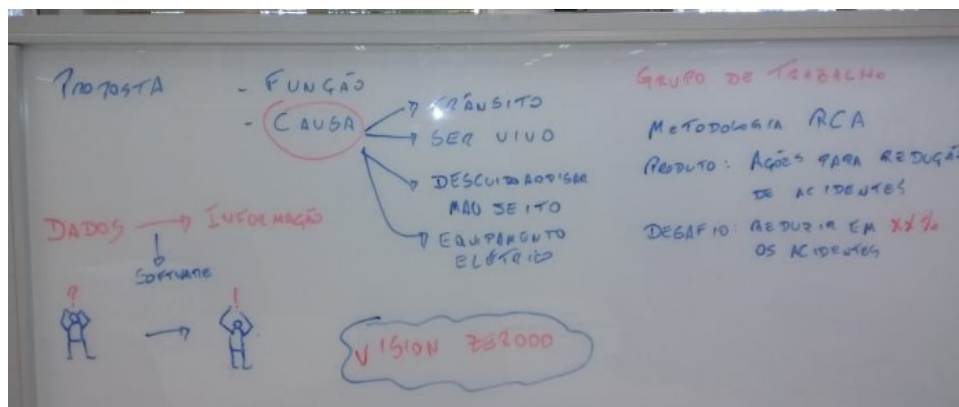 PROPOSTA
- FUNÇÃO
- CAUSA
TRÂNSITO
SER VIVO
DESCUIDO AO PISAR
MAU JEITO
EQUIPAMENTO
ELÉTRICO
DADOS → INFORMAÇÃO
SOFTWARE
? → !
VISION ZEROOO
GRUPO DE TRABALHO
METODOLOGIA RCA
PRODUTO: AÇÕES PARA REDUÇÃO
DE ACIDENTES
DESAFIO: REDUZIR EM XX%
OS ACIDENTES